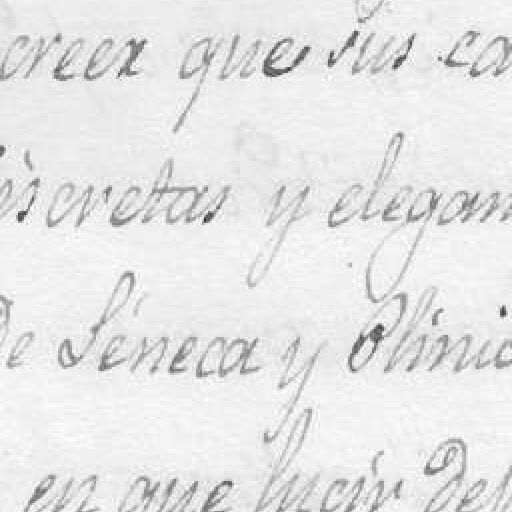 creer que sus ca
iscretas y elegan
de Séneca y Plinio
en que lucir del